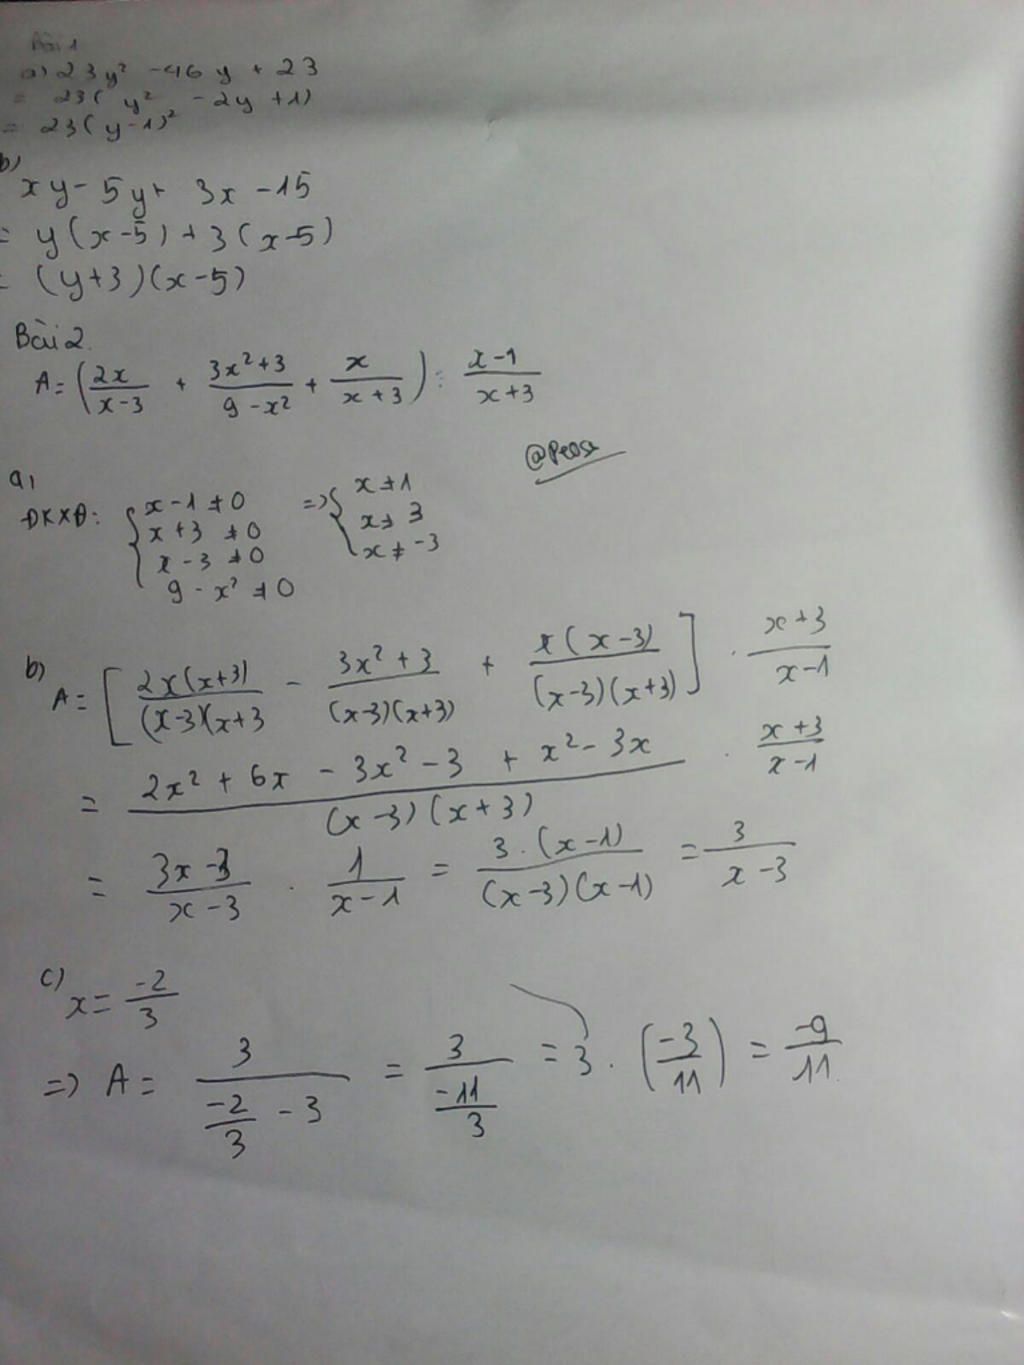 Bài 1
a) 23y² - 46y + 23
= 23(y² - 2y + 1)
= 23(y-1)²
b)
xy - 5y + 3x - 15
= y(x-5) + 3(x-5)
= (y+3)(x-5)
Bài 2.
A = (2x/(x-3) + (3x²+3)/(9-x²) + x/(x+3)) : (x-1)/(x+3)
@Pease
a,
ĐKXĐ: { x - 1 ≠ 0 => { x ≠ 1
x + 3 ≠ 0 x ≠ 3
x - 3 ≠ 0 x ≠ -3
9 - x² ≠ 0
b) A = [2x(x+3)/((x-3)(x+3) - (3x²+3)/((x-3)(x+3)) + x(x-3)/((x-3)(x+3))] . (x+3)/(x-1)
= (2x² + 6x - 3x² - 3 + x² - 3x)/((x-3)(x+3)) . (x+3)/(x-1)
= (3x-3)/(x-3) . 1/(x-1) = 3.(x-1)/((x-3)(x-1)) = 3/(x-3)
c) x = -2/3
=> A = 3/(-2/3 - 3) = 3/(-11/3) = 3 . (-3/11) = -9/11